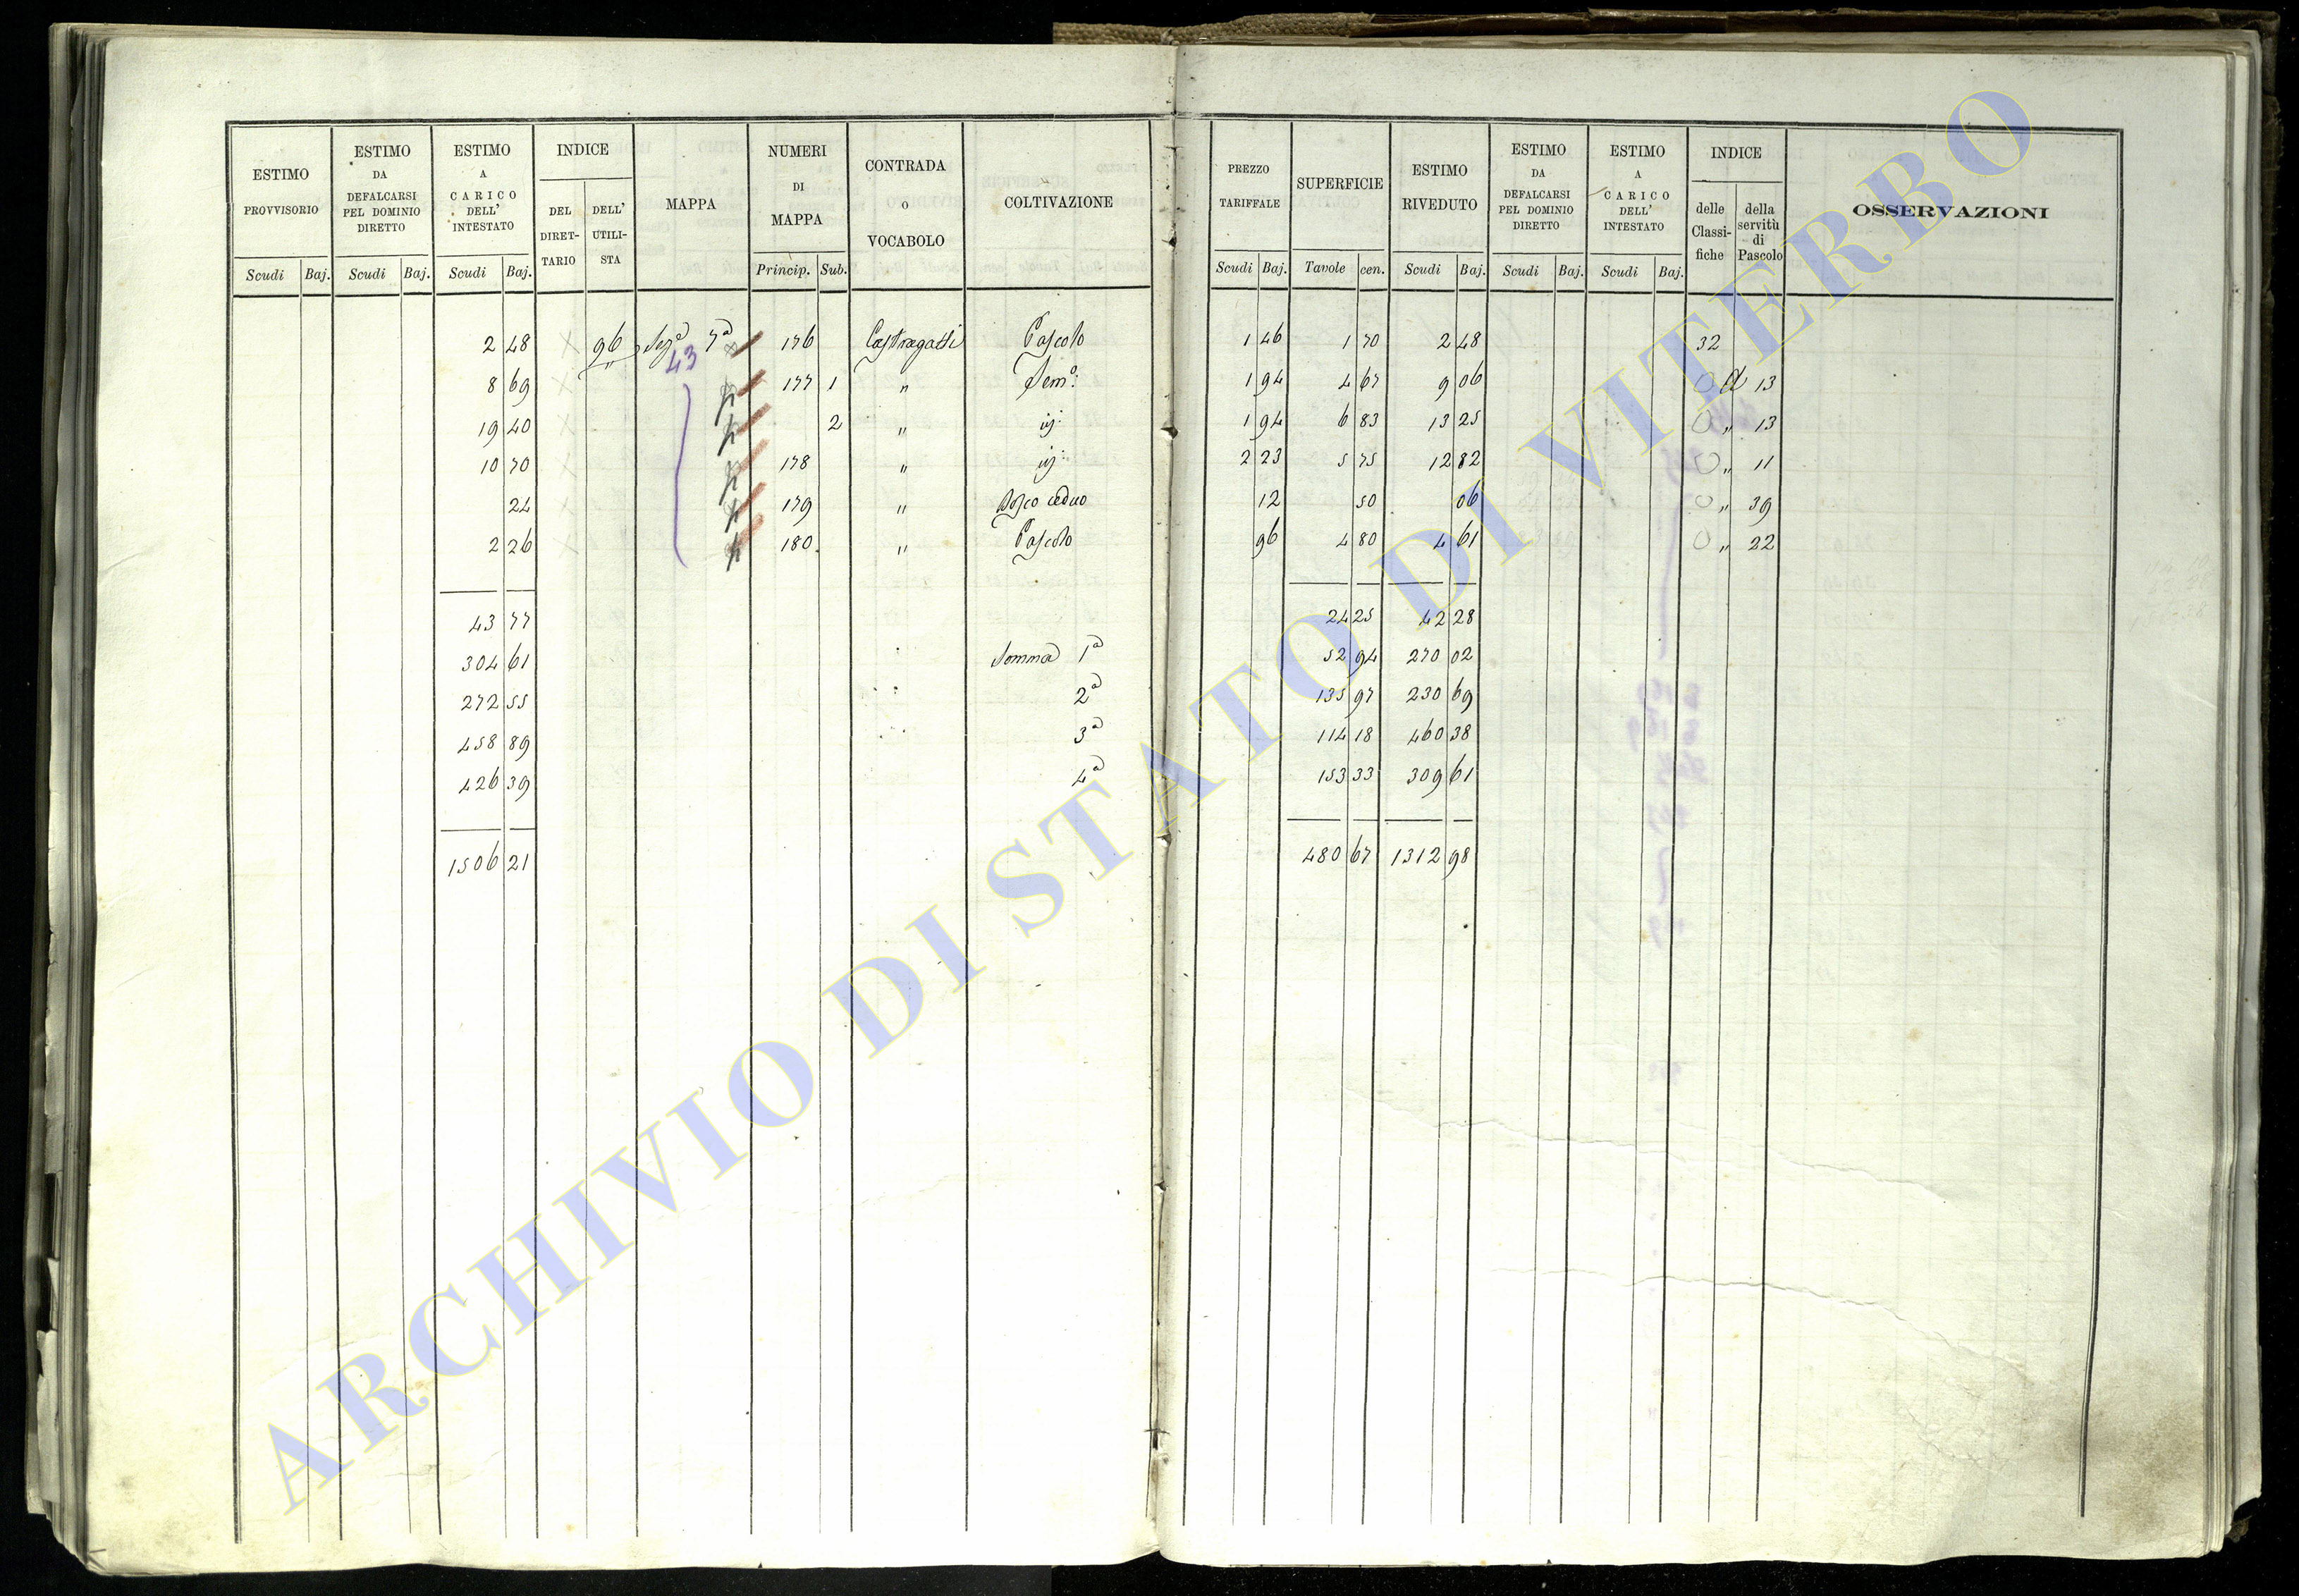 ESTIMO PROVVISORIO Scudi Baj.
ESTIMO DA DEFALCARSI PEL DOMINIO DIRETTO Scudi Baj.
ESTIMO A CARICO DELL' INTESTATO Scudi Baj.
INDICE DEL DIRET- TARIO DELL' UTILI- STA
MAPPA
NUMERI DI MAPPA Princip. Sub.
CONTRADA O VOCABOLO
COLTIVAZIONE
PREZZO TARIFFALE Scudi Baj.
SUPERFICIE Tavole cen.
ESTIMO RIVEDUTO Scudi Baj.
ESTIMO DA DEFALCARSI PEL DOMINIO DIRETTO Scudi Baj.
ESTIMO A CARICO DELL' INTESTATO Scudi Baj.
INDICE delle Classi- fiche della servitù di Pascolo
OSSERVAZIONI
2 48 96 Sez.a 7a 176 Castragatti Pascolo 1 46 1 70 2 48 32
43
8 69 177 1 " Sem.o: 1 94 4 67 9 06 a 13
19 40 2 " id: 1 94 6 83 13 25 " 13
10 70 178 " id: 2 23 5 75 12 82 " 11
24 179 " Bosco ceduo 12 50 06 " 39
2 26 180 " Pascolo 96 4 80 4 61 " 22
43 77 24 25 42 28
304 61 Somma 1a 52 94 270 02
272 55 2a 135 97 230 69
458 89 3a 114 18 460 38
426 39 4a 153 33 309 61
1506 21 480 67 1312 98
ARCHIVIO DI STATO DI VITERBO